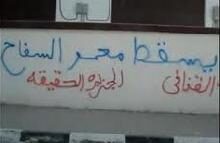 يسقط معمر السفاح
القذافي الجزيره الحقيقه